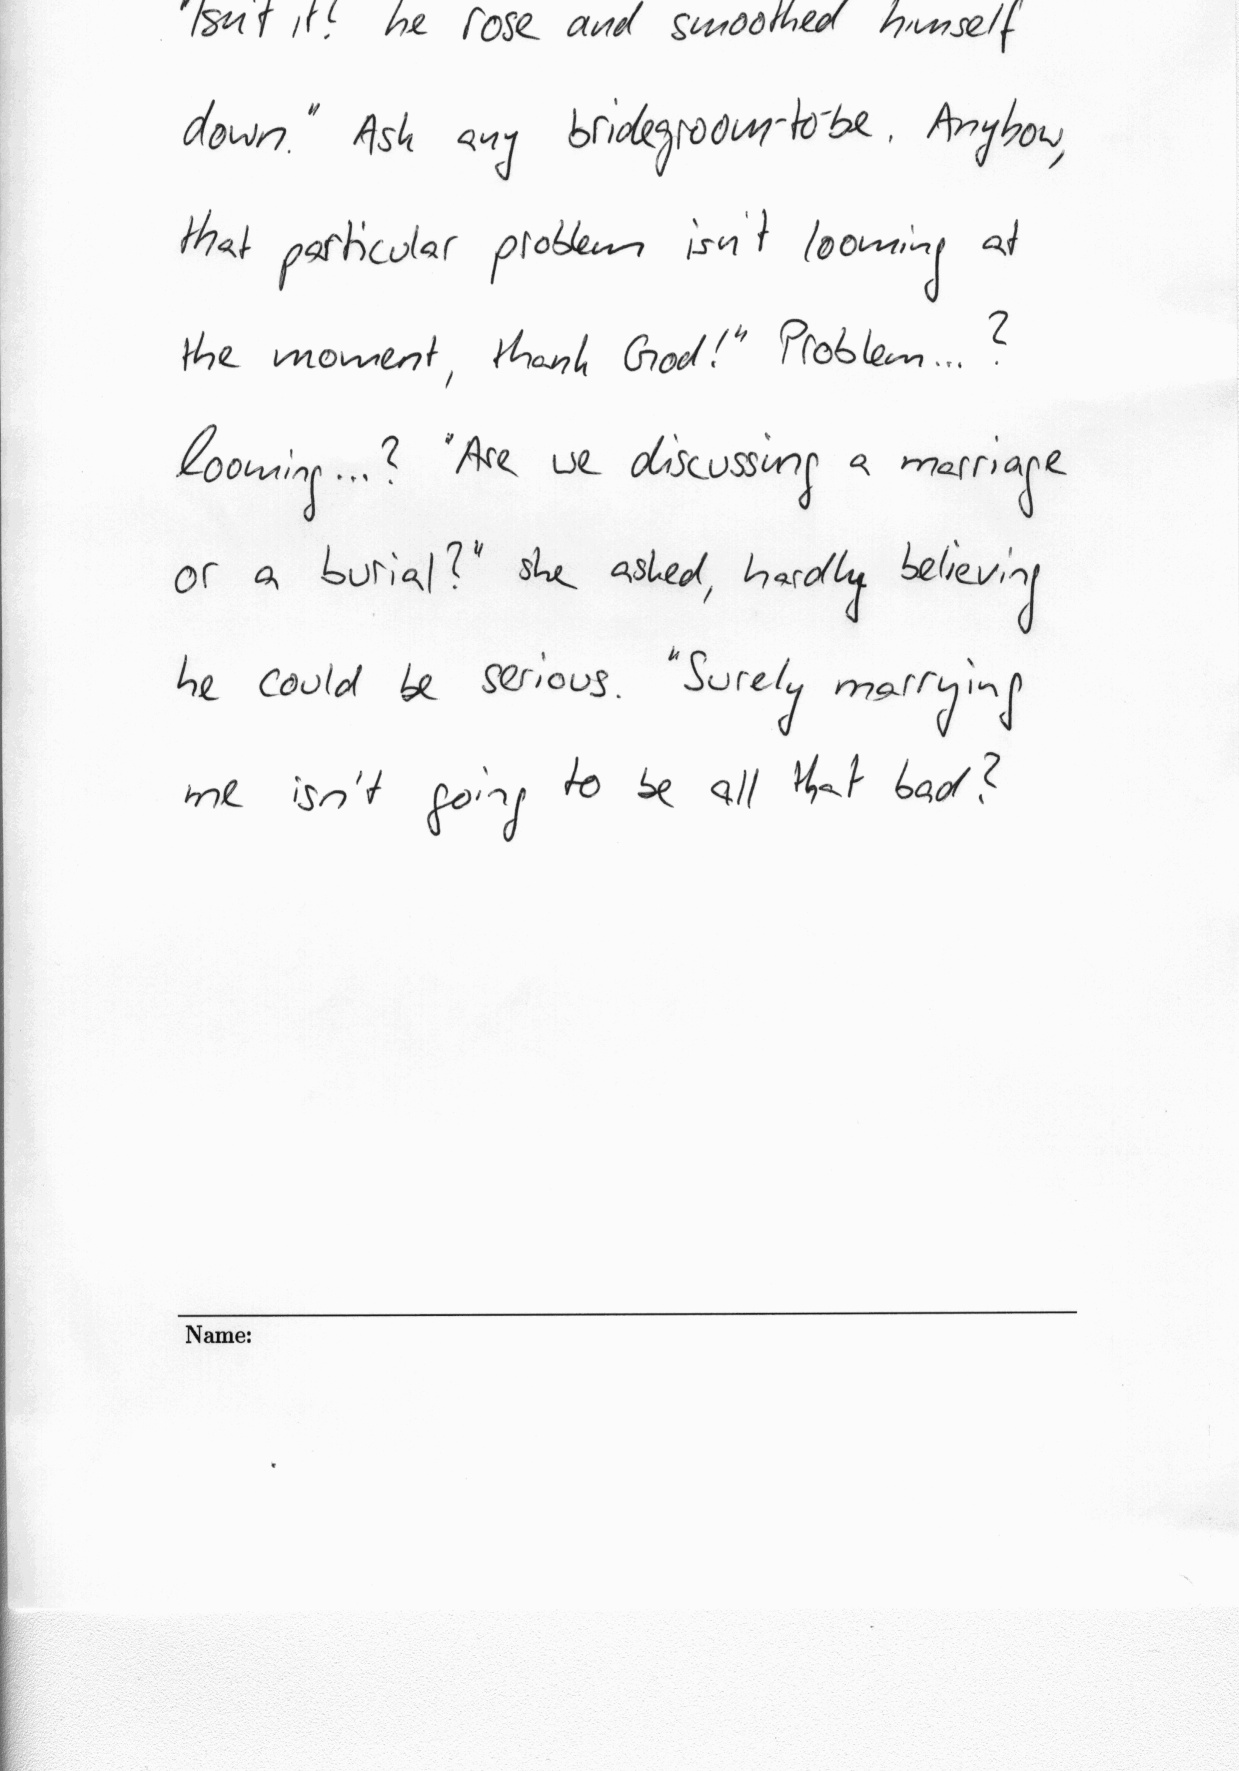 "Isn't it? he rose and smoothed himself
down." Ask any bridegroom-to-be. Anyhow,
that particular problem isn't looming at
the moment, thank God!" Problem...?
looming...? "Are we discussing a marriage
or a burial?" she asked, hardly believing
he could be serious. "Surely marrying
me isn't going to be all that bad?
Name: